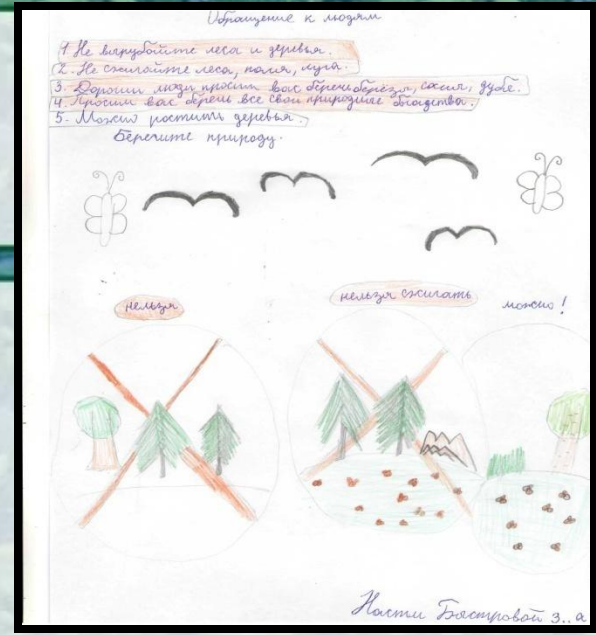 Обращение к людям
1. Не вырубайте леса и деревья.
2. Не сжигайте леса, поля, луга.
3. Дорогии люди просим вас беречь берёзы, сосны, дубы.
4. Просим вас беречь все свои природные богадства.
5. Можно ростить деревья.
Берегите природу.
нельзя
нельзя сжигать
можно!
Насти 3.. а